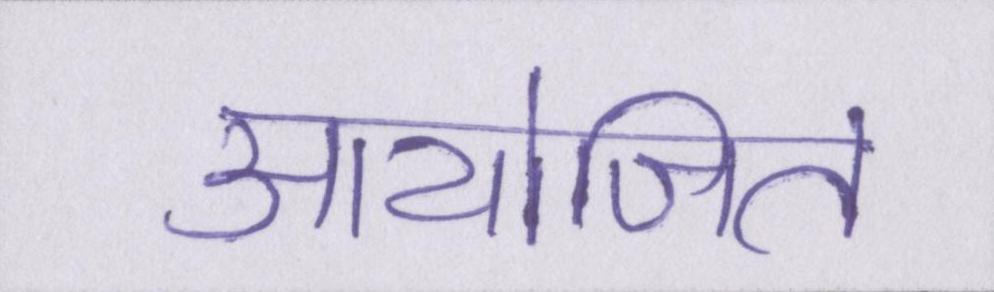 आयोजित